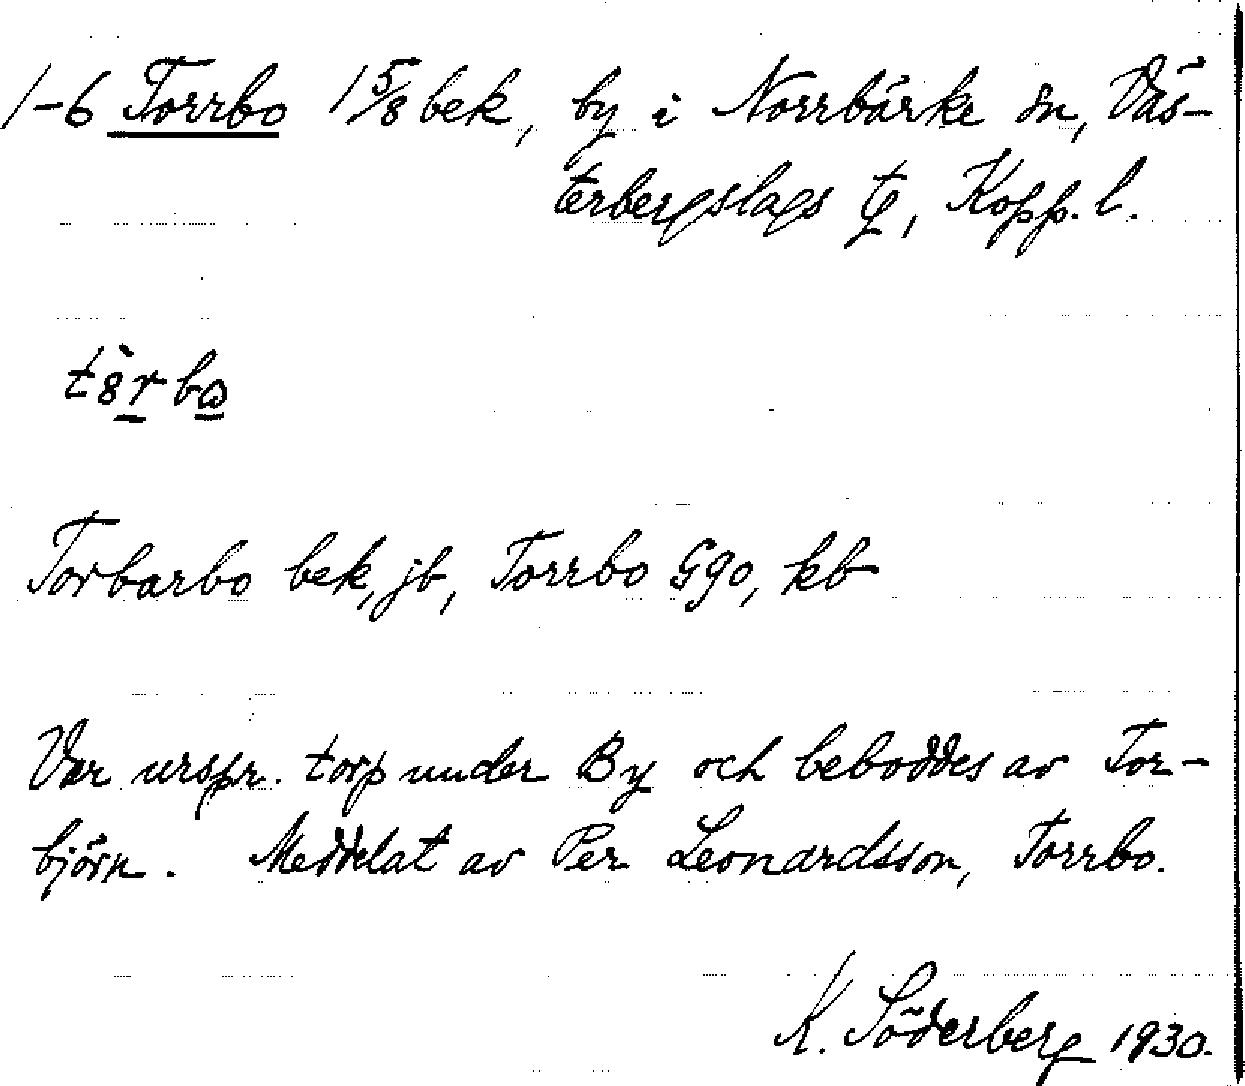 1-6 Torrbo 1 5/8 bek, by i Norrbärke sn, Väs-
terbergslags tg, Kopp. l.
Torbarbo bek, jb, Torrbo Ggo, kb
Var urspr. torp under By och beboddes av Tor-
björn. Meddelat av Per Leonardsson, Torrbo.
K. Söderberg 1930.